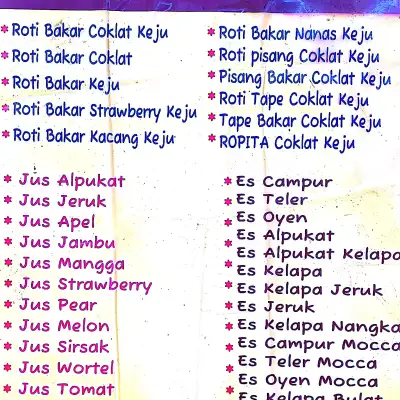 * Roti Bakar Coklat Keju
* Roti Bakar Coklat
* Roti Bakar Keju
* Roti Bakar Strawberry Keju
* Roti Bakar Kacang Keju
* Roti Bakar Nanas Keju
* Roti pisang Coklat Keju
* Pisang Bakar Coklat Keju
* Roti Tape Coklat Keju
* Tape Bakar Coklat Keju
* ROPITA Coklat Keju
* Jus Alpukat
* Jus Jeruk
* Jus Apel
* Jus Jambu
* Jus Mangga
* Jus Strawberry
* Jus Pear
* Jus Melon
* Jus Sirsak
* Jus Wortel
* Jus Tomat
* Es Campur
* Es Teler
* Es Oyen
* Es Alpukat
* Es Alpukat Kelapa
* Es Kelapa
* Es Kelapa Jeruk
* Es Jeruk
* Es Kelapa Nangka
* Es Campur Mocca
* Es Teler Mocca
* Es Oyen Mocca
* Es Kelapa Bulat